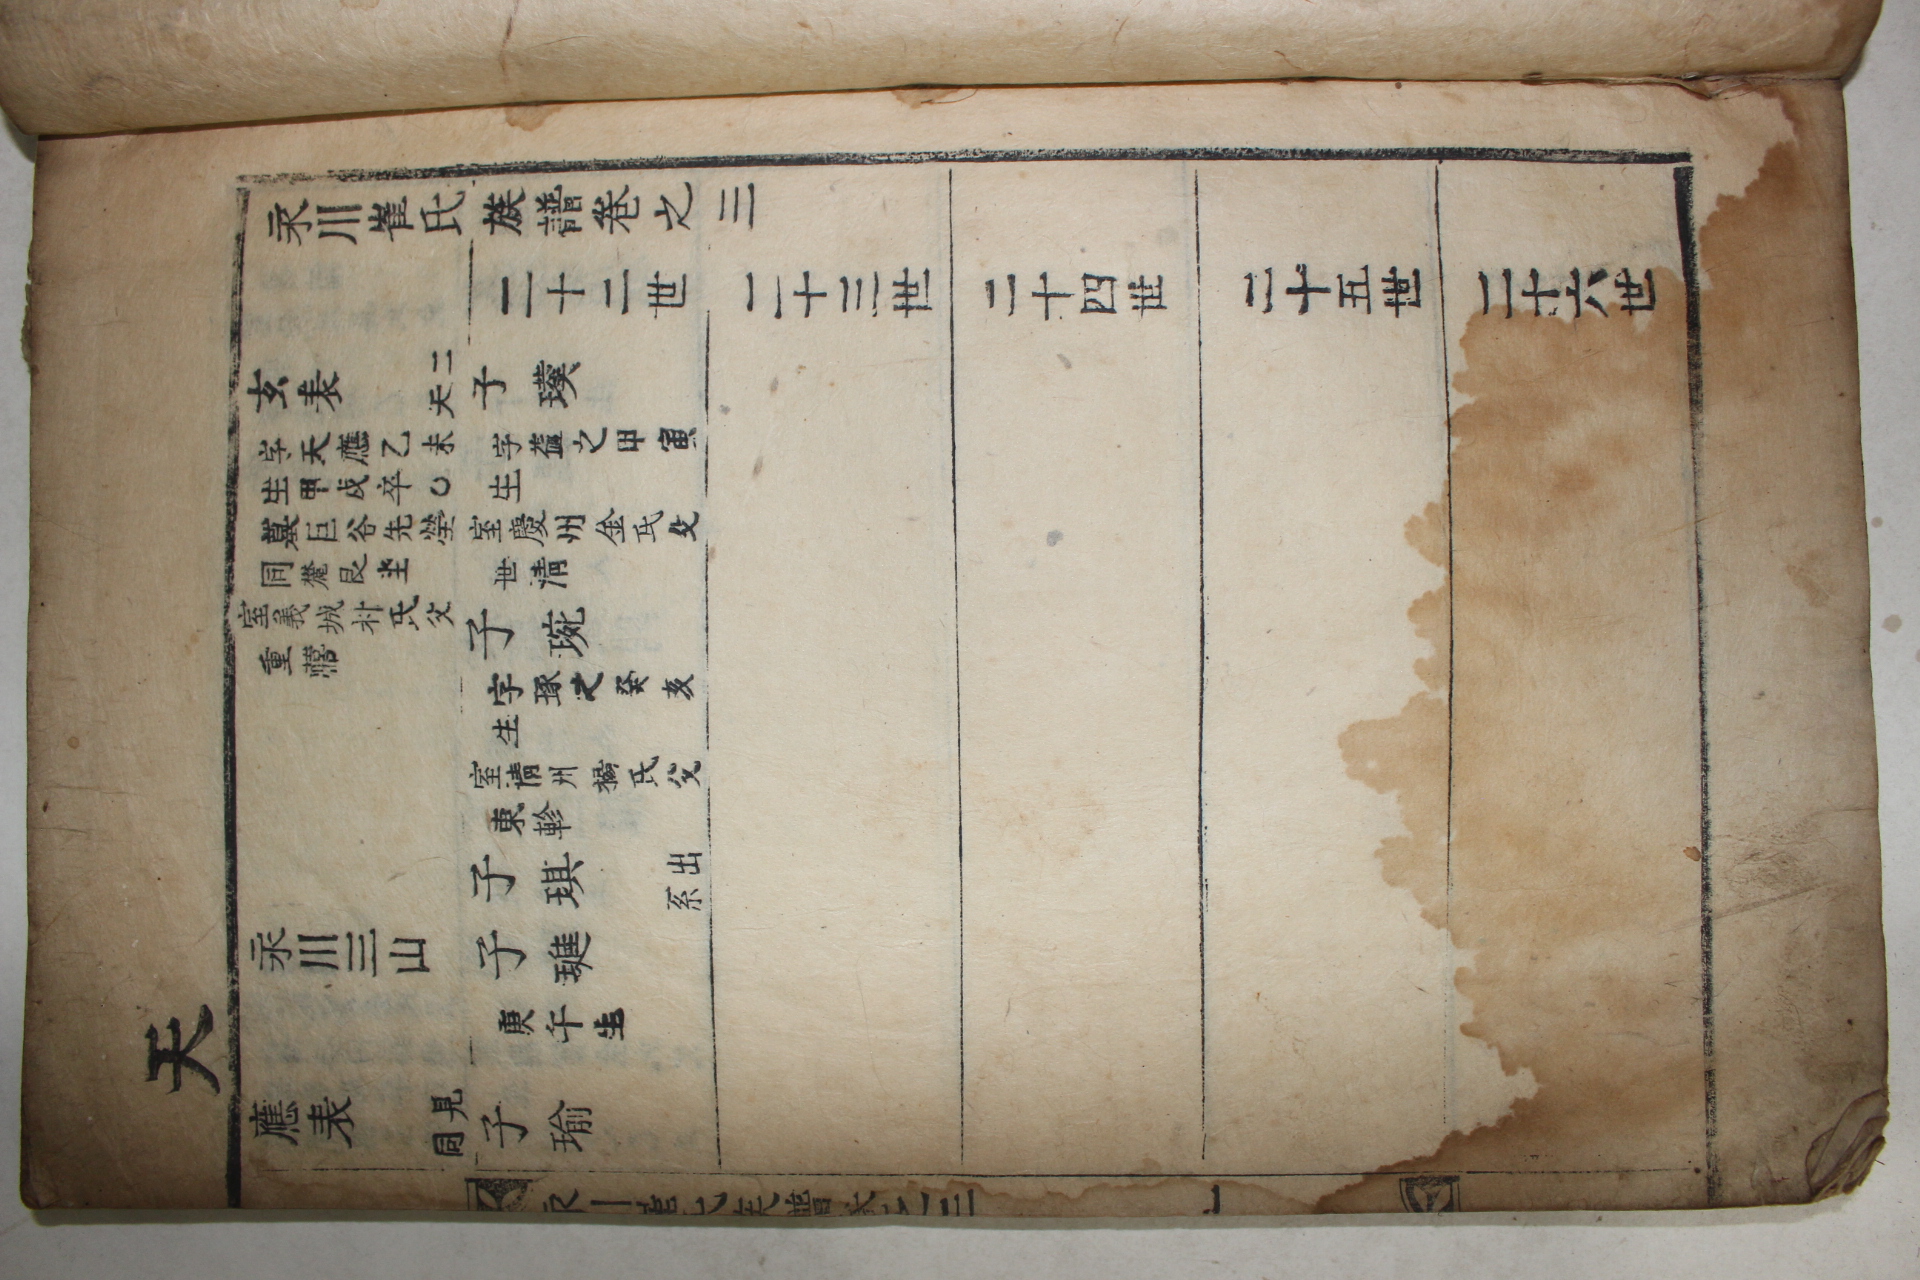 天
永川崔氏族譜卷之三
二十二世
二十三世
二十四世
二十五世
二十六世
玄表
天二
字天應乙未
生甲戌卒
墓巨谷先塋
同麓艮坐
室義城朴氏父
重
子 璞
字蘊之甲寅
生
室慶州金氏父
世淸
子 琬
字琢之癸亥
生
室淸州楊氏父
東軫
子 琪
出系
永川三山
子 璡
庚午生
應表
見同
子 瑜
永川崔氏族譜卷之三
一